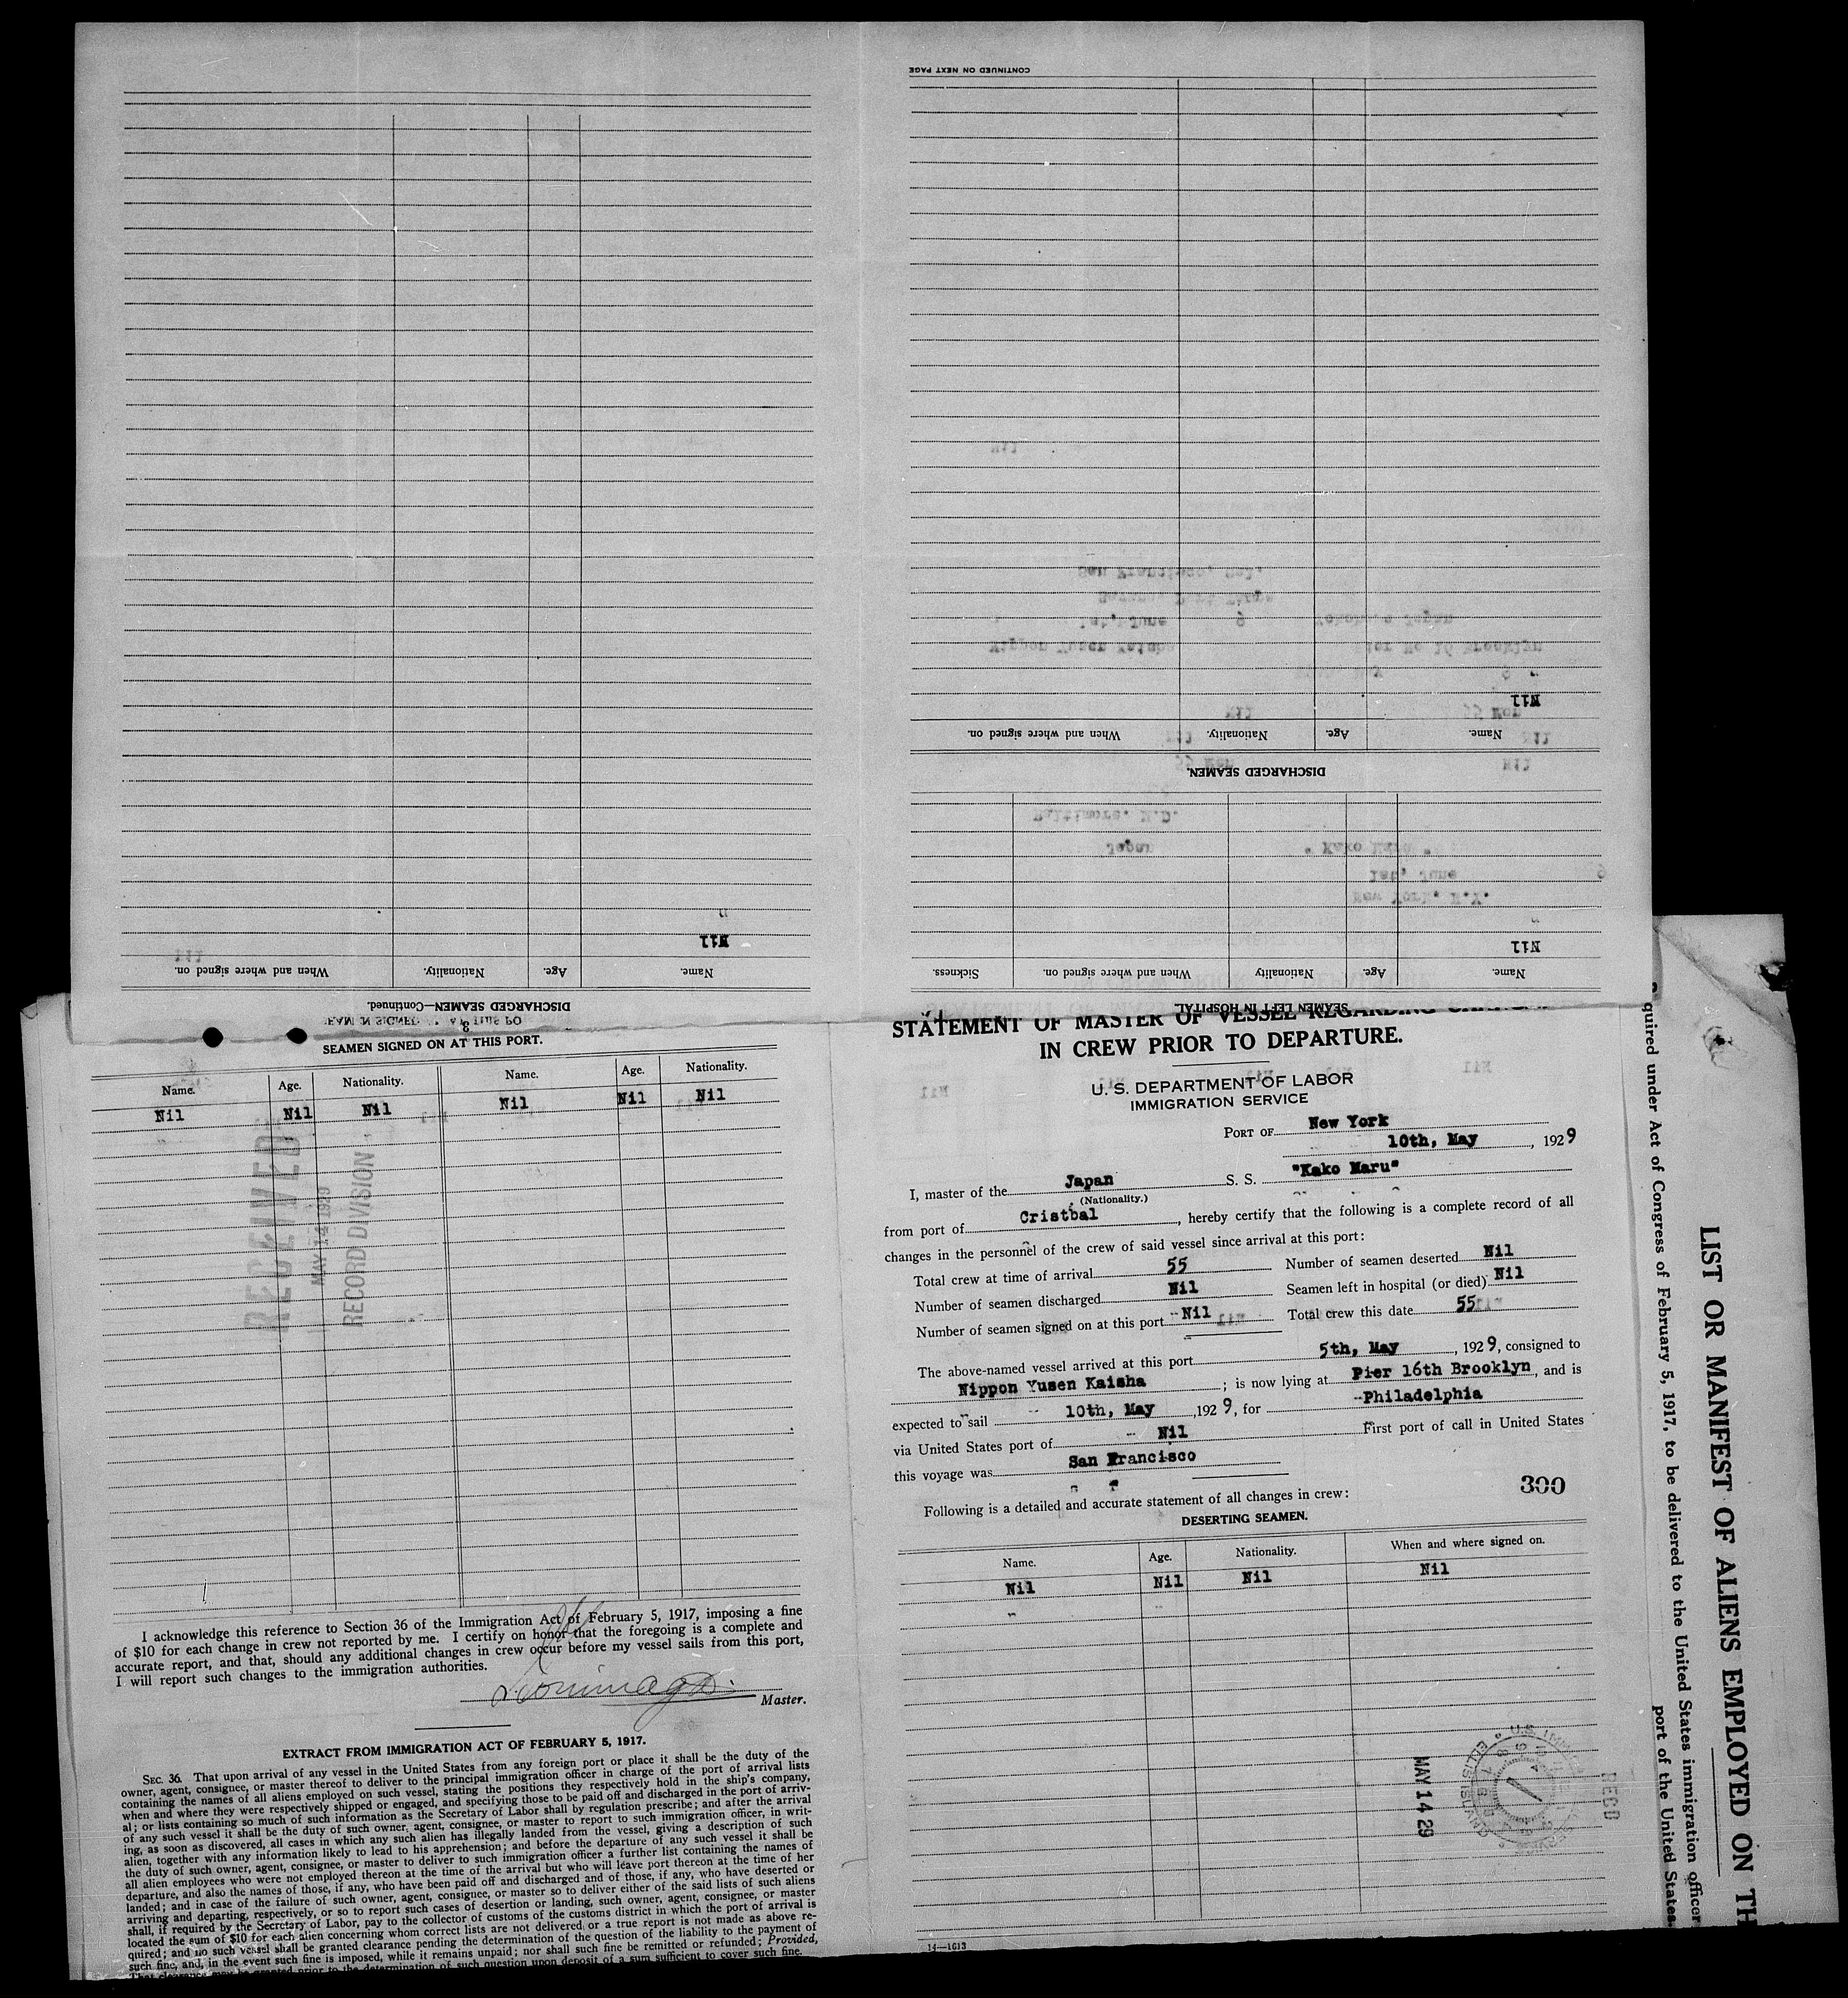 CONTINUED ON NEXT PAGE
Nil
Name. Age. Nationality. When and where signed on.
DISCHARGED SEAMEN.
Nil
Name. Age. Nationality When and where signed on. Sickness.
SEAMEN LEFT IN HOSPITAL
Nil
"
Name. Age. Nationality. When and where signed on.
DISCHARGED SEAMEN—Continued.
8
SEAMEN SIGNED ON AT THIS PORT.
Name. Age. Nationality. Name. Age. Nationality.
Nil Nil Nil Nil Nil Nil
RECEIVED
MAY 14 1929
RECORD DIVISION
I acknowledge this reference to Section 36 of the Immigration Act of February 5, 1917, imposing a fine
of $10 for each change in crew not reported by me. I certify on honor that the foregoing is a complete and
accurate report, and that, should any additional changes in crew occur before my vessel sails from this port,
I will report such changes to the immigration authorities.
Master.
EXTRACT FROM IMMIGRATION ACT OF FEBRUARY 5, 1917.
SEC. 36. That upon arrival of any vessel in the United States from any foreign port or place it shall be the duty of the
owner, agent, consignee, or master thereof to deliver to the principal immigration officer in charge of the port of arrival lists
containing the names of all aliens employed on such vessel, stating the positions they respectively hold in the ship's company,
when and where they were respectively shipped or engaged, and specifying those to be paid off and discharged in the port of arriv-
al; or lists containing so much of such information as the Secretary of Labor shall by regulation prescribe; and after the arrival
of any such vessel it shall be the duty of such owner, agent, consignee, or master to report to such immigration officer, in writ-
ing, as soon as discovered, all cases in which any such alien has illegally landed from the vessel, giving a description of such
alien, together with any information likely to lead to his apprehension; and before the departure of any such vessel it shall be
the duty of such owner, agent, consignee, or master to deliver to such immigration officer a further list containing the names of
all alien employees who were not employed thereon at the time of the arrival but who will leave port thereon at the time of her
departure, and also the names of those, if any, who have been paid off and discharged and of those, if any, who have deserted or
landed; and in case of the failure of such owner, agent, consignee, or master so to deliver either of the said lists of such aliens
arriving and departing, respectively, or so to report such cases of desertion or landing, such owner, agent, consignee, or master
shall, if required by the Secretary of Labor, pay to the collector of customs of the customs district in which the port of arrival is
located the sum of $10 for each alien concerning whom correct lists are not delivered or a true report is not made as above re-
quired; and no such vessel shall be granted clearance pending the determination of the question of the liability to the payment of
such fine, and, in the event such fine is imposed, while it remains unpaid; nor shall such fine be remitted or refunded; Provided,
That clearance may be granted prior to the determination of such question upon deposit of a sum sufficient to cover such fine.
STATEMENT OF MASTER OF VESSEL REGARDING
IN CREW PRIOR TO DEPARTURE.
U. S. DEPARTMENT OF LABOR
IMMIGRATION SERVICE
PORT OF New York
10th, May, 1929
I, master of the Japan S. S. "Kako Maru"
(Nationality.)
from port of Cristbal, hereby certify that the following is a complete record of all
changes in the personnel of the crew of said vessel since arrival at this port:
Total crew at time of arrival 55 Number of seamen deserted Nil
Number of seamen discharged Nil Seamen left in hospital (or died) Nil
Number of seamen signed on at this port Nil Total crew this date 55
The above-named vessel arrived at this port 5th, May, 1929, consigned to
Nippon Yusen Kaisha; is now lying at Pier 16th Brooklyn, and is
expected to sail 10th, May, 1929, for Philadelphia
via United States port of Nil First port of call in United States
this voyage was San Francisco
300
Following is a detailed and accurate statement of all changes in crew:
DESERTING SEAMEN.
Name. Age. Nationality. When and where signed on.
Nil Nil Nil Nil
MAY 14 29
RECD
14—1613
LIST OR MANIFEST OF ALIENS EMPLOYED ON TH
quired under Act of Congress of February 5, 1917, to be delivered to the United States immigration officer
port of the United States.